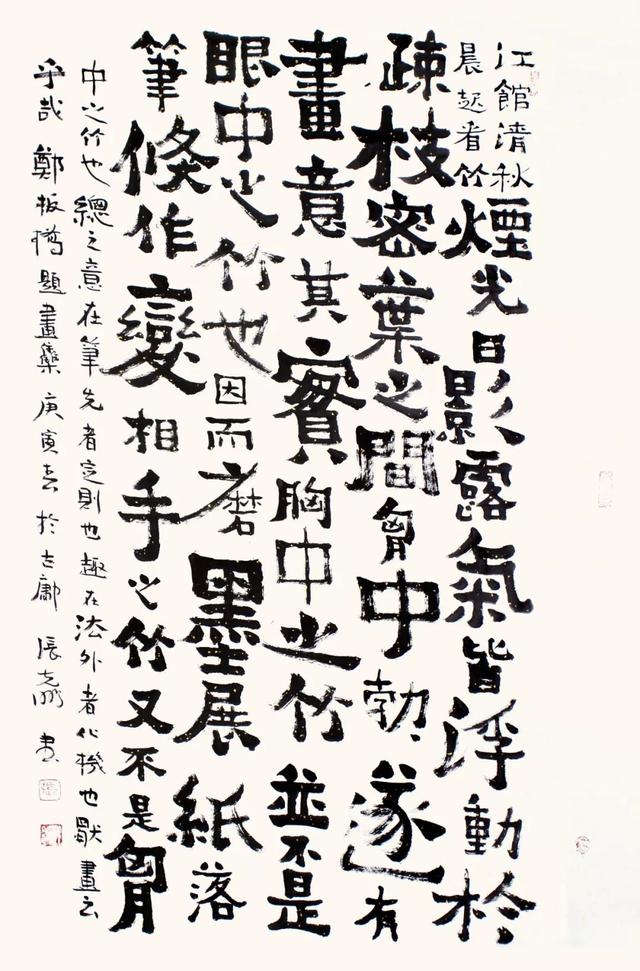 江館清秋
晨起看竹
煙光日影露氣皆浮動於
疎枝密葉之間胷中勃〻遂有
畫意其實胸中之竹並不是
眼中之竹也因而磨墨展紙落
筆倏作變相手之竹又不是胷
中之竹也總之意在筆先者定則也趣在法外者化機也獨畫云
乎哉 鄭板橋題畫集 庚寅 於 張 書